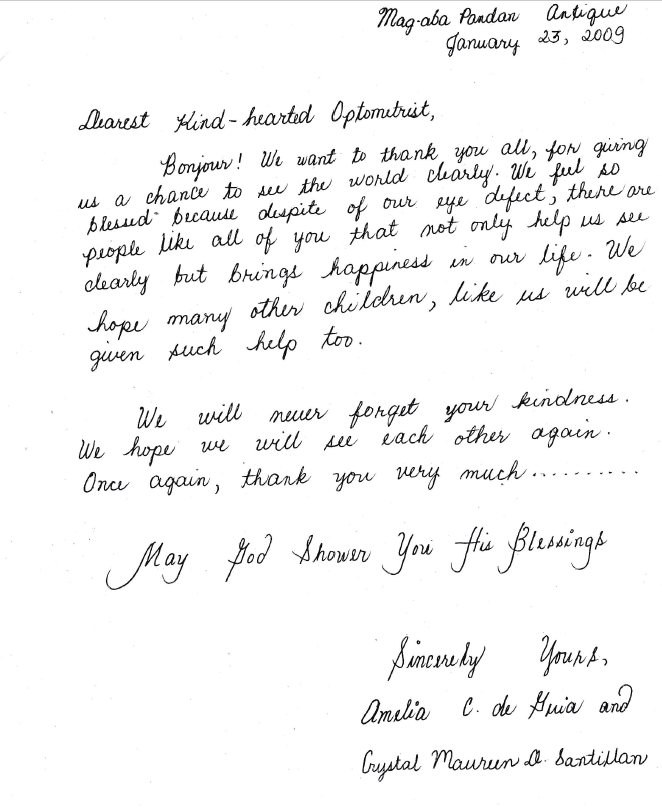 Mag-aba Pandan Antique
January 23, 2009
Dearest Kind-hearted Optometrist,
Bonjour! We want to thank you all, for giving
us a chance to see the world clearly. We feel so
blessed because despite of our eye defect, there are
people like all of you that not only help us see
clearly but brings happiness in our life. We
hope many other children, like us will be
given such help too.
We will never forget your kindness.
We hope we will see each other again.
Once again, thank you very much..........
May God Shower You His Blessings
Sincerely Yours,
Amelia C. de Guia and
Crystal Maureen D. Santillan